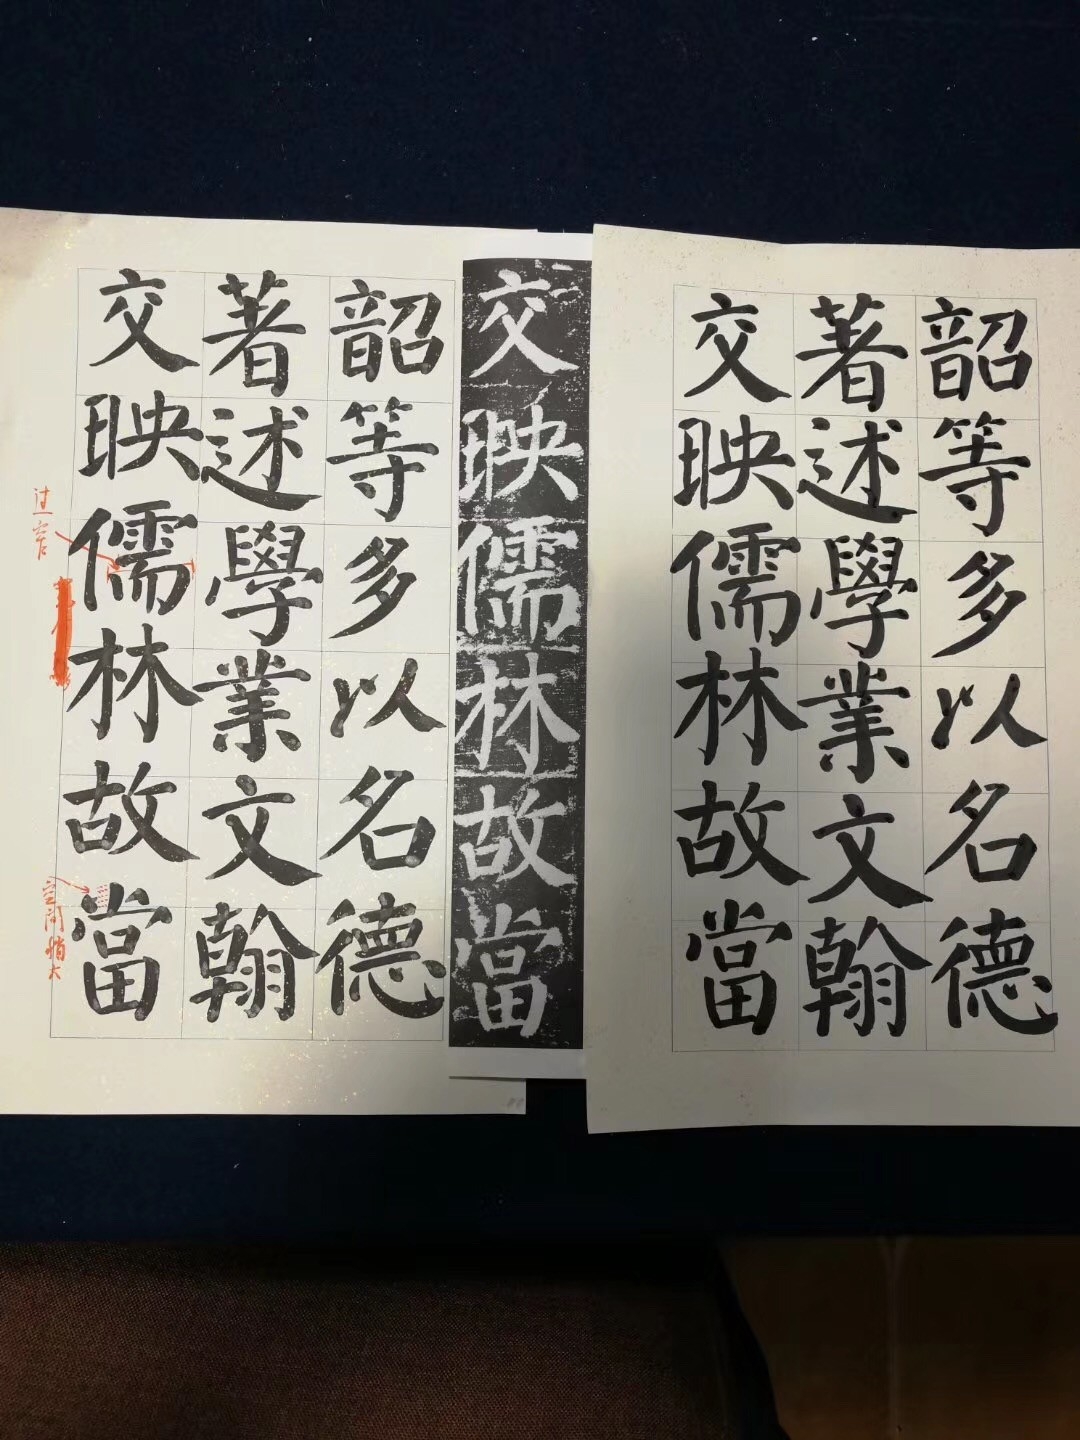 韶等多以名德
著述學業文翰
交映儒林故當
过窄
空间稍大
交映儒林故當
韶等多以名德
著述學業文翰
交映儒林故當